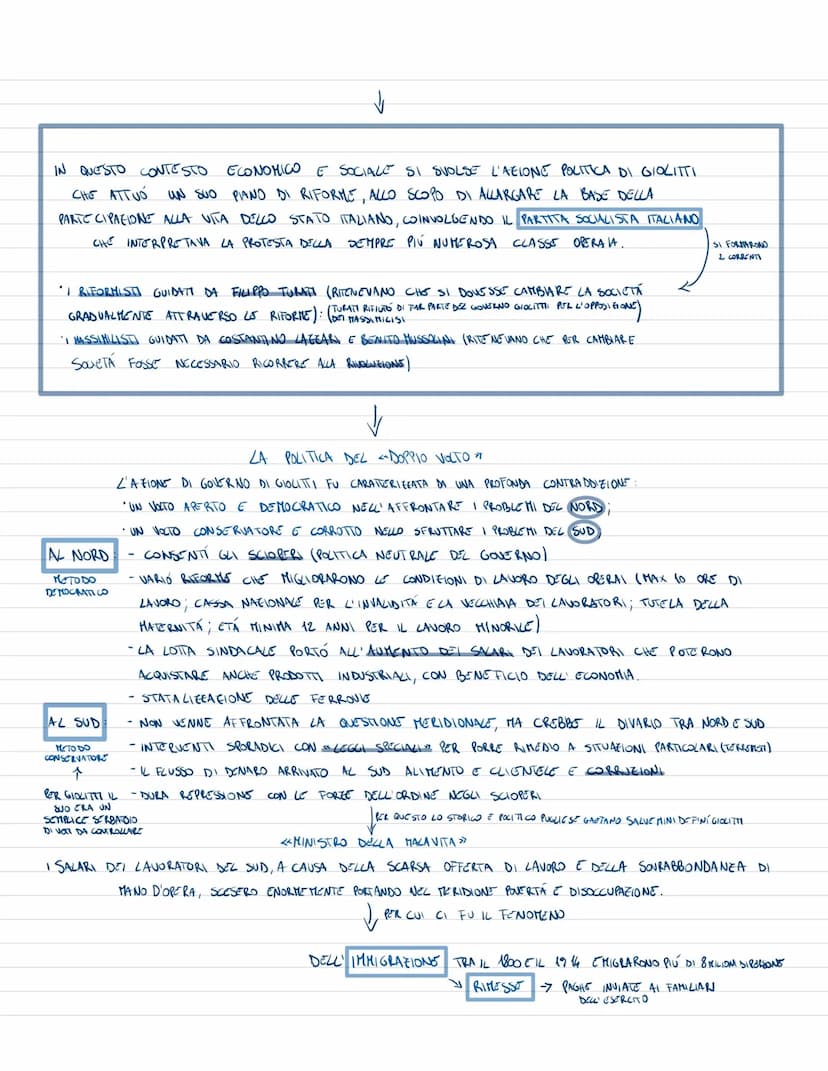 IN QUESTO CONTESTO ECONOMICO E SOCIALE SI SVOLSE L'AZIONE POLITICA DI GIOLITTI
CHE ATTUÓ UN SUO PIANO DI RIFORME, ALLO SCOPO DI ALLARGARE LA BASE DELLA
PARTECIPAZIONE ALLA VITA DELLO STATO ITALIANO, COINVOLGENDO IL PARTITA SOCIALISTA ITALIANO
CHE INTERPRETAVA LA PROTESTA DELLA SEMPRE PIÚ NUMEROSA CLASSE OPERAIA.
SI FORMARONO
2 CORRENTI
• I RIFORMISTI GUIDATI DA FILIPPO TURATI (RITENEVANO CHE SI DOVESSE CAMBIARE LA SOCIETÁ
GRADUALMENTE ATTRAVERSO LE RIFORME): (TURATI RIFIUTÓ DI FAR PARTE DEL GOVERNO GIOLITTI PER L'OPPOSIZIONE)
DEI MASSIMILISI
• I MASSIMILISTI GUIDATI DA COSTANTINO LAZZARI E BENITO MUSSOLINI (RITENEVANO CHE PER CAMBIARE
SOCIETÁ FOSSE NECESSARIO RICORRERE ALLA RIVOLUZIONE)
LA POLITICA DEL «DOPPIO VOLTO»
L'AZIONE DI GOVERNO DI GIOLITTI FU CARATERIZZATA DA UNA PROFONDA CONTRADDIZIONE:
• UN VOLTO APERTO E DEMOCRATICO NELL'AFFRONTARE I PROBLEMI DEL NORD;
• UN VOLTO CONSERVATORE E CORROTTO NELLO SFRUTTARE I PROBLEMI DEL SUD;
AL NORD: - CONSENTÍ GLI SCIOPERI (POLITICA NEUTRALE DEL GOVERNO)
METODO
DEMOCRATICO
- VARIÓ RIFORME CHE MIGLIORARONO LE CONDIZIONI DI LAVORO DEGLI OPERAI (MAX 10 ORE DI
LAVORO; CASSA NAZIONALE PER L'INVALIDITÁ E LA VECCHIAIA DEI LAVORATORI; TUTELA DELLA
MATERNITÁ; ETÁ MINIMA 12 ANNI PER IL LAVORO MINORILE)
- LA LOTTA SINDACALE PORTÓ ALL'AUMENTO DEI SALARI DEI LAVORATORI CHE POTERONO
ACQUISTARE ANCHE PRODOTTI INDUSTRIALI, CON BENEFICIO DELL'ECONOMIA.
- STATALIZZAZIONE DELLE FERROVIE
AL SUD: - NON VENNE AFFRONTATA LA QUESTIONE MERIDIONALE, MA CREBBE IL DIVARIO TRA NORD E SUD
METODO
CONSERVATORE
- INTERVENTI SPORADICI CON «LEGGI SPECIALI» PER PORRE RIMEDIO A SITUAZIONI PARTICOLARI (TERREMOTI)
- IL FLUSSO DI DENARO ARRIVATO AL SUD ALIMENTO E CLIENTELE E CORRUZIONI
- DURA REPRESSIONE CON LE FORZE DELL'ORDINE NEGLI SCIOPERI
PER GIOLITTI IL
SUD ERA UN
SEMPLICE SERBATOIO
DI VOTI DA CONTROLLARE
PER QUESTO LO STORICO E POLITICO PUGLIESE GAETANO SALVEMINI DEFINÍ GIOLITTI
«MINISTRO DELLA MALAVITA»
I SALARI DEI LAVORATORI DEL SUD, A CAUSA DELLA SCARSA OFFERTA DI LAVORO E DELLA SOVRABBONDANZA DI
MANO D'OPERA, SCESERO ENORMEMENTE PORTANDO NEL MERIDIONE POVERTÁ E DISOCCUPAZIONE.
PER CUI CI FU IL FENOMENO
DELL'IMMIGRAZIONE TRA IL 1800 E IL 1914 EMIGRARONO PIÚ DI 8 MILIONI DI PERSONE
RIMESSE → PAGHE INVIATE AI FAMILIARI
DELL'ESERCITO